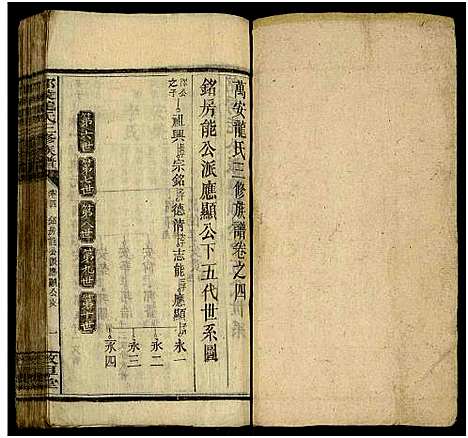 萬安龍氏三修族譜卷之四
銘房能公派應顯公下五代世系圖
公之子 祖興 宗銘 德清 志能 應顯 永一
永二
永三
永四
第六世
第七世
第八世
第九世
第十世
龍氏三修族譜
銘房能公派應顯公支
一